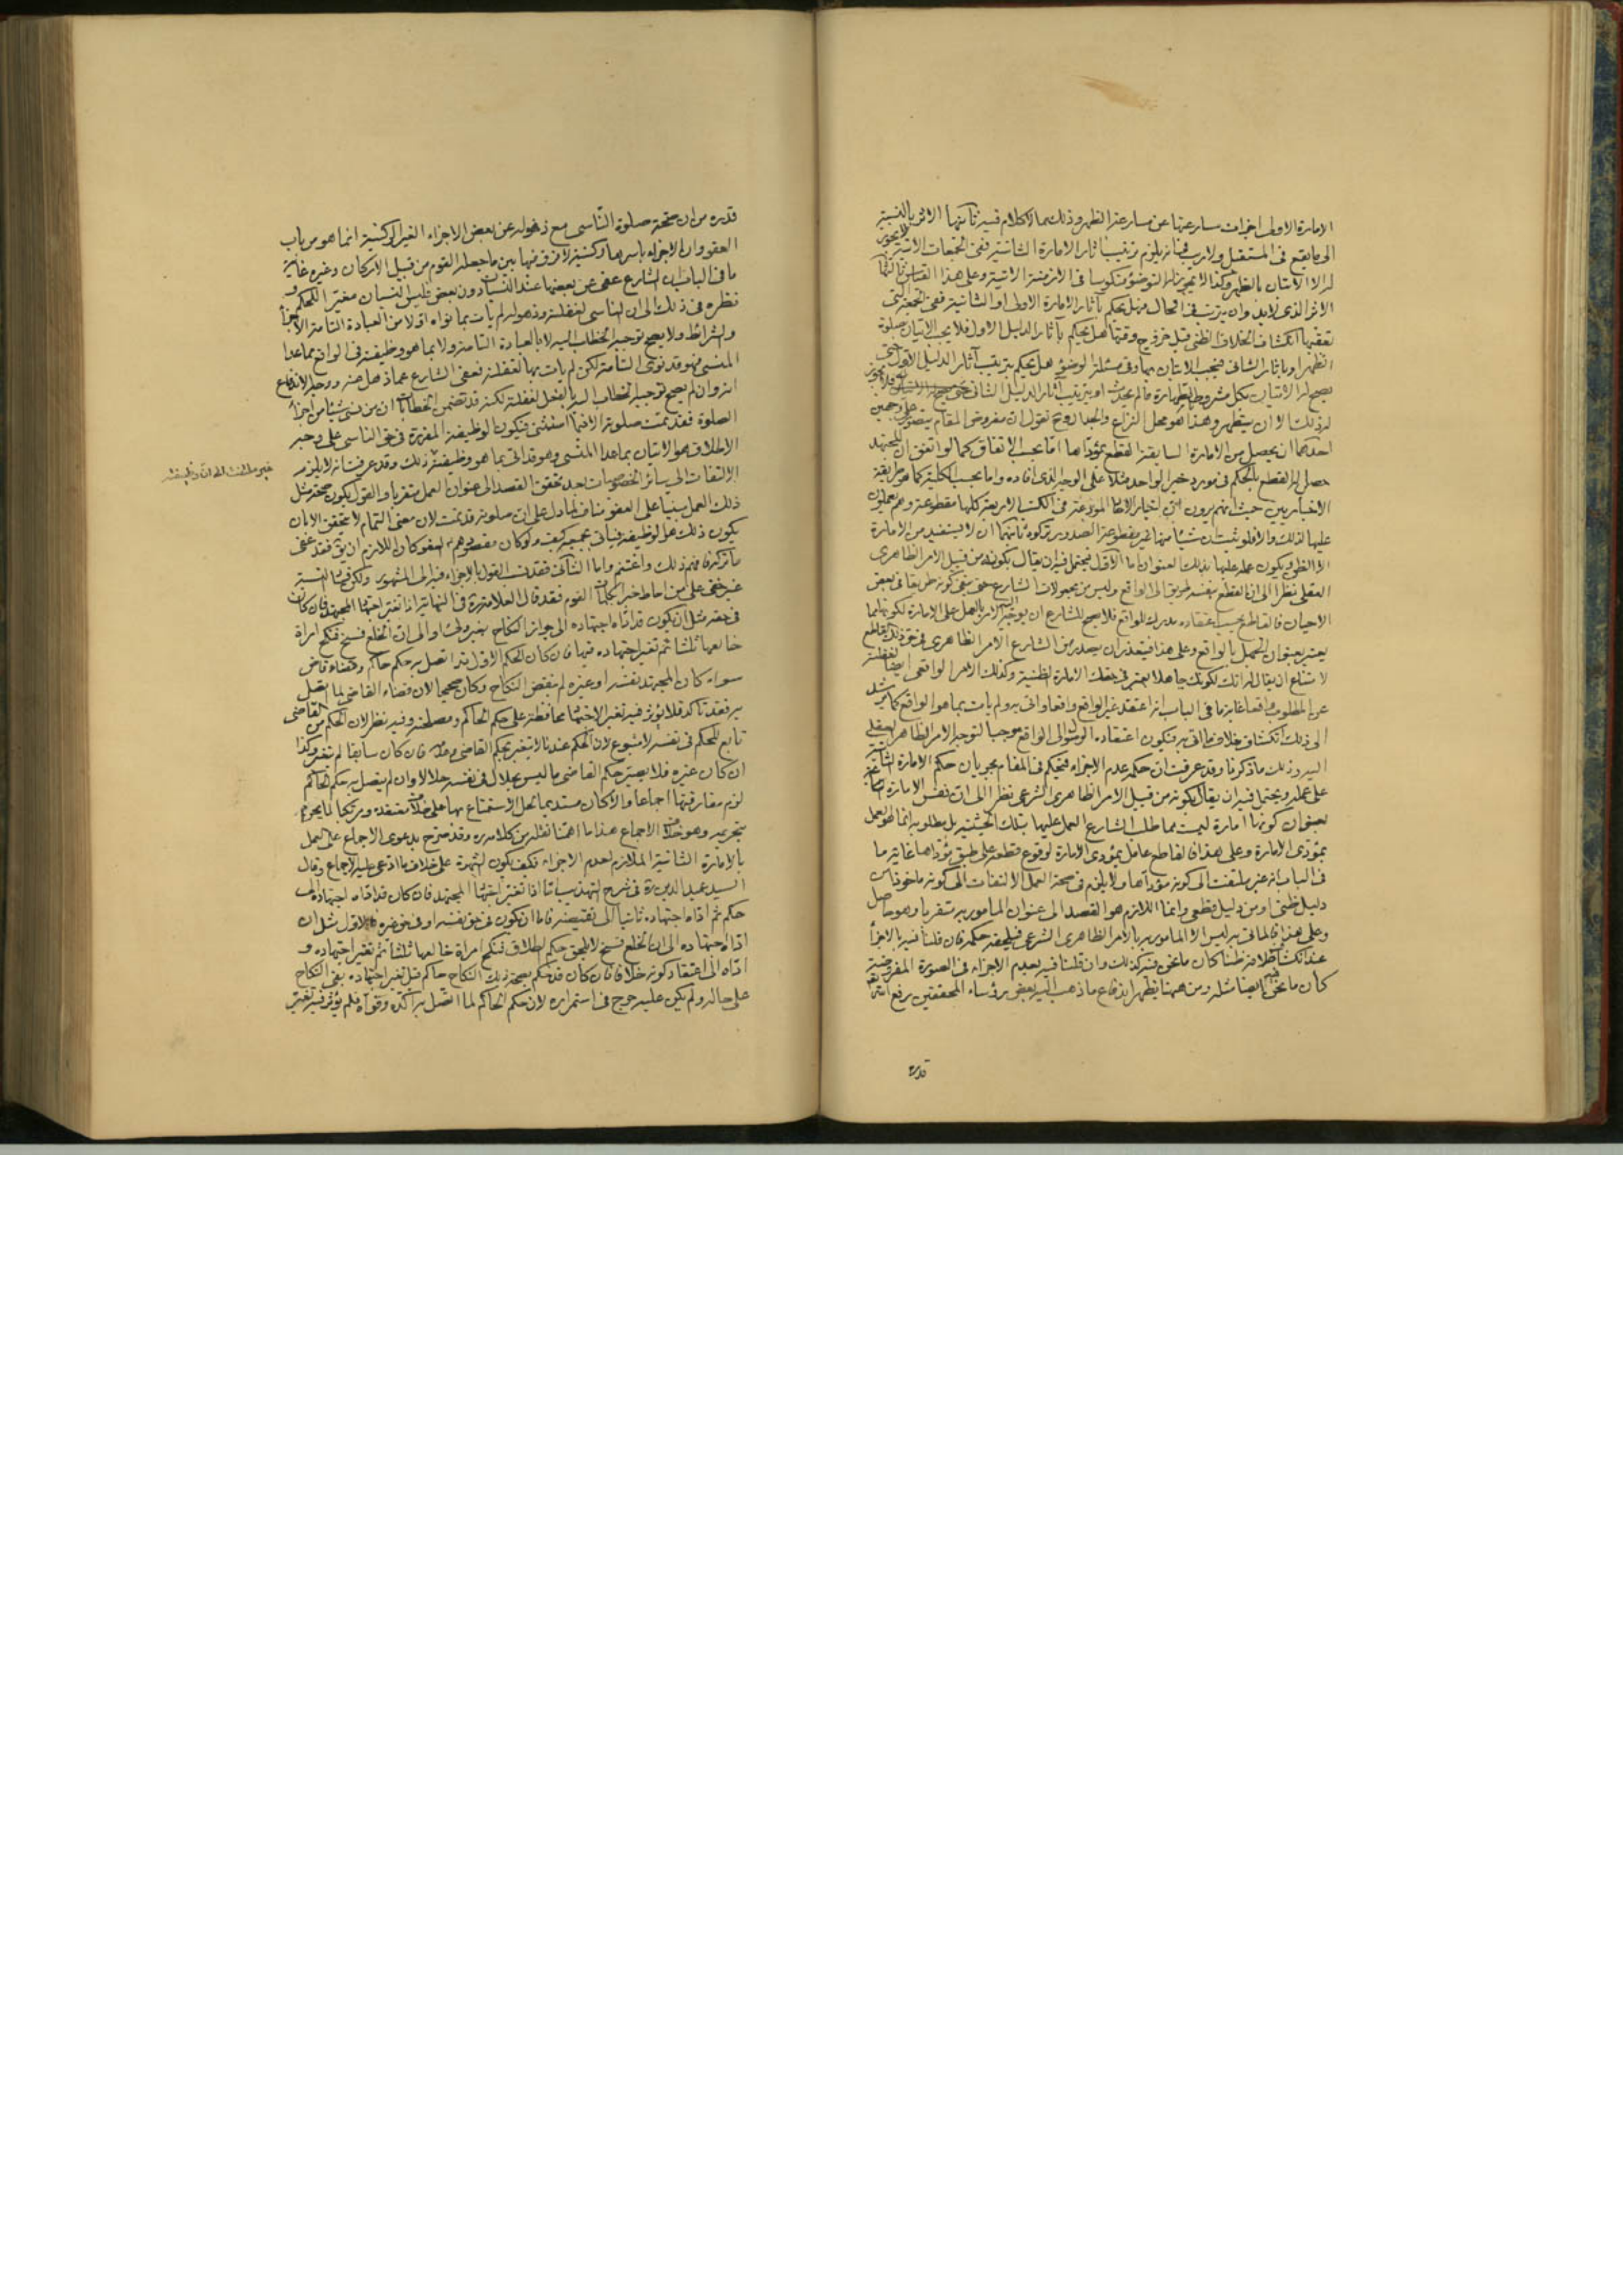 الامارة الاولى اخرات مسارعتها عن مسارعة الظهر وذلك مما لا كلام فيه ثانيها الاثر بالنسبة
الى ما يقع فى المستقبل ولا ريب فى انه يلزم ترتيب اثار الامارة الثانية ففى الجمعات الاتية لا يجوز
له الا الاتيان بالظهر وكذا لا يجوز له التوضؤ منكوسا فى الازمنة الاتية وعلى هذا القياس ثالثها
الاثر الذى لا بد وان يترتب فى الحال فهل يحكم باثار الامارة الاولى او الثانية ففى الجمعة التى
تعقبها انكشاف الخلاف الظنى قبل خروج وقتها هل يحكم باثار الدليل الاول فلا يجب الاتيان بصلوة
الظهر او باثار الثانى فيجب الاتيان بها وفى مسئلة الوضوء هل يحكم بترتيب آثار الدليل الاول حتى
يصح له الاتيان بكل مشروط بالطهارة ما لم يحدث او بترتيب آثار الدليل الثانى فلا يجوز
له ذلك الا ان يتطهر وهذا هو محل النزاع والجدال وح نقول ان مفروض المقام يتصور على وجهين
احدهما ان يحصل من الامارة السابقة القطع بمؤداها اما بحسب الاتفاق كما لو اتفق ان المجتهد
حصل له القطع بالحكم فى مورد خبر الواحد مثلا على الوجه الذى افاده واما بحسب الكلية كما هو طريقة
الاخباريين حيث انهم يرون ان اخبار الاحاد المودعة فى الكتب الاربعة كلها مقطوعة وهم يعملون
عليها لذلك والا فلو ثبت ان شيئا منها غير مقطوعة الصدور تركوه ثانيهما ان لا يستفيد من الامارة
الا الظن ويكون عمله عليها بذلك العنوان اما الاول فيحتمل فيه ان يقال بكونه من قبيل الامر الظاهرى
العقلى نظرا الى ان القطع بنفسه طريق الى الواقع وليس من مجعولات الشارع حتى ينفى كونه طريقا فى بعض
الاحيان فالقاطع بحسب اعتقاده مدرك للواقع فلا يصح للشارع ان يوجه اليه الامر بالعمل على الامارة لكونها مما
يعتبر بعنوان الجهل بالواقع وعلى هذا فيتعذر ان يصدر من الشارع الامر الظاهرى فى حق ذلك القاطع
لامتناع ان يقال له انك لكونك جاهلا يعتبر فى حقك الامارة الظنية وكذلك الامر الواقعى ايضا لغفلته
عن المطلوب واقعا غاية ما فى الباب انه اعتقد غير الواقع واقعا واتى به ولم يات بما هو الواقع كما يرشد
الى ذلك انكشاف خلاف ما اتى به فيكون اعتقاده الوصول الى الواقع موجبا لتوجه الامر الظاهرى العقلى
اليه وذلك ما ذكرنا وقد عرفت ان حكمه عدم الاجزاء فيحكم فى المقام بجريان حكم الامارة الثانية
على عمله ويحتمل فيه ان يقال بكونه من قبيل الامر الظاهرى الشرعى نظرا الى ان نفس الامارة
بعنوان كونها امارة ليست مما طلب الشارع العمل عليها بتلك الحيثية بل مطلوبه انما هو العمل
بمؤدى الامارة وعلى هذا فالقاطع عامل بمؤدى الامارة لوقوع قطعه على طبق مؤداها غاية ما
فى الباب انه غير ملتفت الى كونه مؤداها ولا يلزم فى صحة العمل الالتفات الى كونه ماخوذا من
دليل ظنى او من دليل قطعى وانما اللازم هو القصد الى عنوان المامور به متقربا وهو حاصل
وعلى هذا فما اتى به ليس الا المامور به بالامر الظاهرى الشرعى فيلحقه حكمه فان قلنا فيه بالاجزاء
عند انكشاف خلافه ظنا كان ما نحن فيه كذلك وان قلنا فيه بعدم الاجزاء فى الصورة المفروضة
كان ما نحن فيه ايضا مثله ومن ههنا يظهر اندفاع ما ذهب اليه بعض رؤساء المحققين رفع الله
قدره
قدره من ان صحة صلوة الناسى مع ذهوله عن بعض الاجزاء الغير الركنية انما هو من باب
العفو وان الاجزاء باسرها ركنية لا فرق فيها بين ما جعله القوم من قبيل الاركان وغيره غاية
ما فى الباب ان الشارع عفى عن بعضها عند النسيان دون بعض فليس النسيان مغيرا للحكم و
نظره فى ذلك الى ان الناسى لغفلته وذهوله لم يات بما نواه اولا من العبادة التامة الاجزاء
والشرائط ولا يصح توجيه الخطاب اليه لا بالعبادة التامة ولا بما هو وظيفته فى الواقع مما عدا
المنسى فهو قد نوى التامة لكن لم يات بها لغفلته فعفى الشارع عما ذهل عنه ووجه الاندفاع
انه وان لم يصح توجيه الخطاب اليه بالفعل لغفلته لكنه قد تضمن الخطابات ان من نسى شيئا من اجزاء
الصلوة فقد تمت صلوته الا فيما استثنى فيكون الوظيفة المقررة فى حق الناسى على وجه
الاطلاق هو الاتيان بما عدا المنسى وهو قد اتى بما هو وظيفته ذلك وقد عرفت انه لا يلزم
غير ملتفت الى ان وظيفته
الالتفات الى سائر الخصوصيات بعد تحقق القصد الى عنوان العمل متقربا والقول بكون صحة مثل
ذلك العمل مبنيا على العفو مناف لما دل على ان صلوته قد تمت لان معنى التمام لا يتحقق الا بان
يكون ذلك هو الوظيفة كيف ولو كان مقصودهم العفو كان اللازم ان يق فقد عفى
ما تركه فافهم ذلك واغتنم واما الثانى فقد نسب القول بالاجزاء فيه الى المشهور ولكن فى النسبة
غير خفى على من احاط خبرا بكلمات القوم فقد قال العلامة ره فى النهاية اذا تغير اجتهاد المجتهد فان كان
فى حقه مثل ان يكون قد اداه اجتهاده الى جواز النكاح بغير ولى او الى ان الخلع فسخ فنكح امراة
خالعها ثلثا ثم تغير اجتهاده فيها فان كان الحكم الاول قد اتصل به حكم حاكم وقضاء قاض
سواء كان المجتهد نفسه او غيره لم ينقض النكاح وكان صحيحا لان قضاء القاضى لما اتصل
به فقد تاكد فلا يؤثر فيه تغير الاجتهاد محافظة على حكم الحاكم ومصلحته وفيه نظر لان الحكم من القاضى
تابع للحكم فى نفسه لا متبوع لان الحكم عندنا لا يتغير بحكم القاضى وعدمه فان كان سابقا لم يتغير وكذا
ان كان غيره فلا يصير حكم القاضى ما ليس بحلال فى نفسه حلالا وان لم يتصل به حكم الحاكم
لزم مفارقتها اجماعا والا كان مستديما لحل الاستمتاع بها على خلاف معتقده ومرتكبا لما يجزم
بتحريمه وهو خلاف الاجماع هذا ما اهمنا نقله من كلامه ره وقد صرح بدعوى الاجماع على العمل
بالامارة الثانية الملازم لعدم الاجزاء فكيف يكون الشهرة على خلاف ما ادعى عليه الاجماع وقال
السيد عميد الدين ره فى شرح التهذيب اذا تغير اجتهاد المجتهد فان كان قد اداه اجتهاده الى
حكم ثم اداه اجتهاده ثانيا الى نقيضه فاما ان يكون فى حق نفسه او فى حق غيره فالاول مثل ان
اداه اجتهاده الى ان الخلع فسخ لا يلحق حكم الطلاق فنكح امراة خالعها ثلثا ثم تغير اجتهاده و
اداه الى اعتقاد كونه خلافا فان كان قد حكم بصحة ذلك النكاح حاكم قبل تغير اجتهاده بقى النكاح
على حاله ولم يكن عليه حرج فى استمراره لان حكم الحاكم لما اتصل به اكده وقواه فلم يؤثر فيه تغير